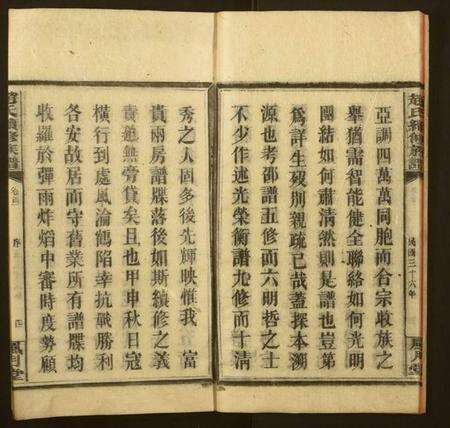 趙氏續修族譜
民國三十六年
亞調四萬萬同胞而合宗收族之
舉猶需智能健全聯絡如何光明
團結如何肅清然則是譜也豈第
為詳生殁別親疏已哉蓋探本溯
源也考邵譜五修而六明哲之士
不少作述光榮衡譜九修而十清
秀之人固多後先輝映惟我 富
貴兩房譜牒落後如斯續修之義
責無旁貸矣且也甲申秋日寇
橫行到處風淪鶴陷幸抗戰勝利
各安故居而守舊業所有譜牒均
收羅於彈雨炸熖中審時度勢顧
趙氏續修族譜
卷首
序
四
風月堂